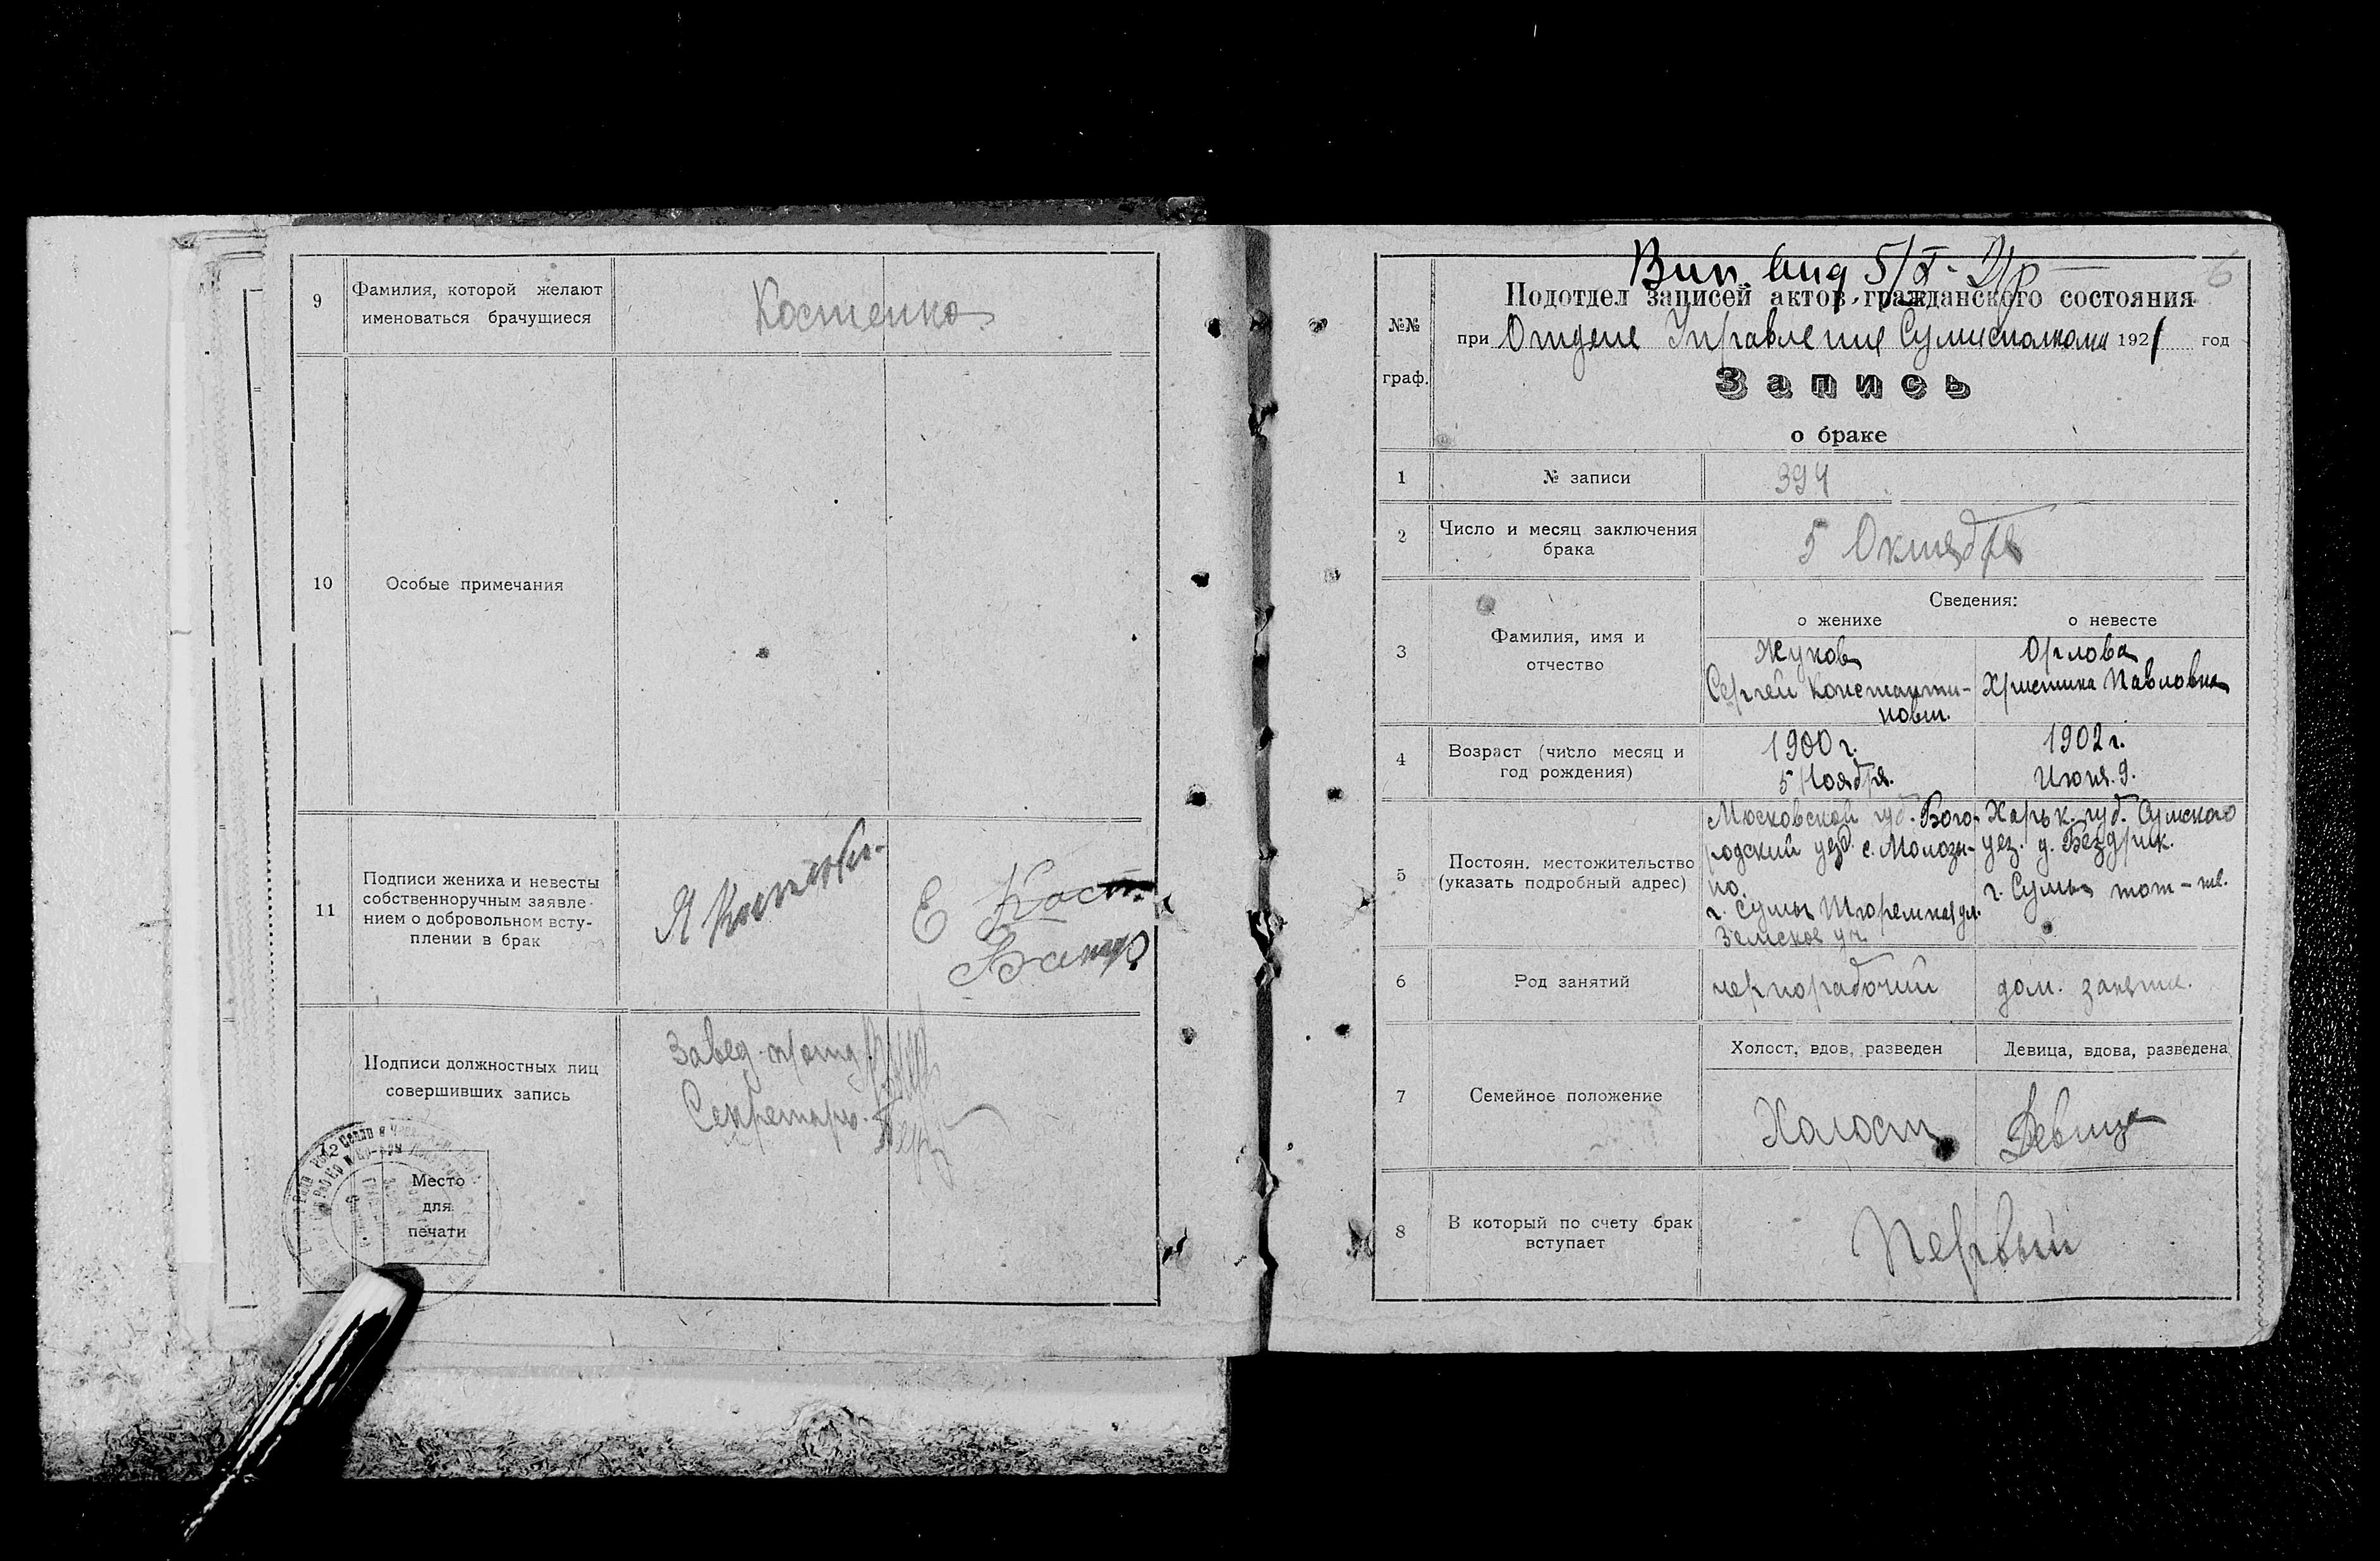 9
Фамилия, которой желают
именоваться брачущиеся
Костенко
10
Особые примечания
11
Подписи жениха и невесты
собственноручным заявле-
нием о добровольном всту-
плении в брак
Я Костенко
Е Кост
Подписи должностных лиц
совершивших запись
Завед. п/отд
Секретарь
Место
для
печати
6
Вып. 5/X-21р
№№
граф.
Подотдел записей актов гражданского состояния
при Отделе Управления Сумисполкома 1921 год
Запись
о браке
1
№ записи
394
2
Число и месяц заключения
брака
5 Октября
3
Фамилия, имя и
отчество
Сведения:
о женихе
о невесте
Жуков
Сергей Константи-
нович.
Орлова
Христина Павловна
4
Возраст (число месяц и
год рождения)
1900 г.
5 Ноября.
1902 г.
Июня. 9.
5
Постоян. местожительство
(указать подробный адрес)
Московской губ. Бого-
родский уезд. с. Молози-
но.
г. Сумы Тюремная ул.
Земское уч.
Харьк. губ. Сумского
уез. д. Бездрик.
г. Сумы
6
Род занятий
чернорабочий
дом. занятие.
7
Семейное положение
Холост, вдов, разведен
Девица, вдова, разведена
Холост
Девица
8
В который по счету брак
вступает
Первый